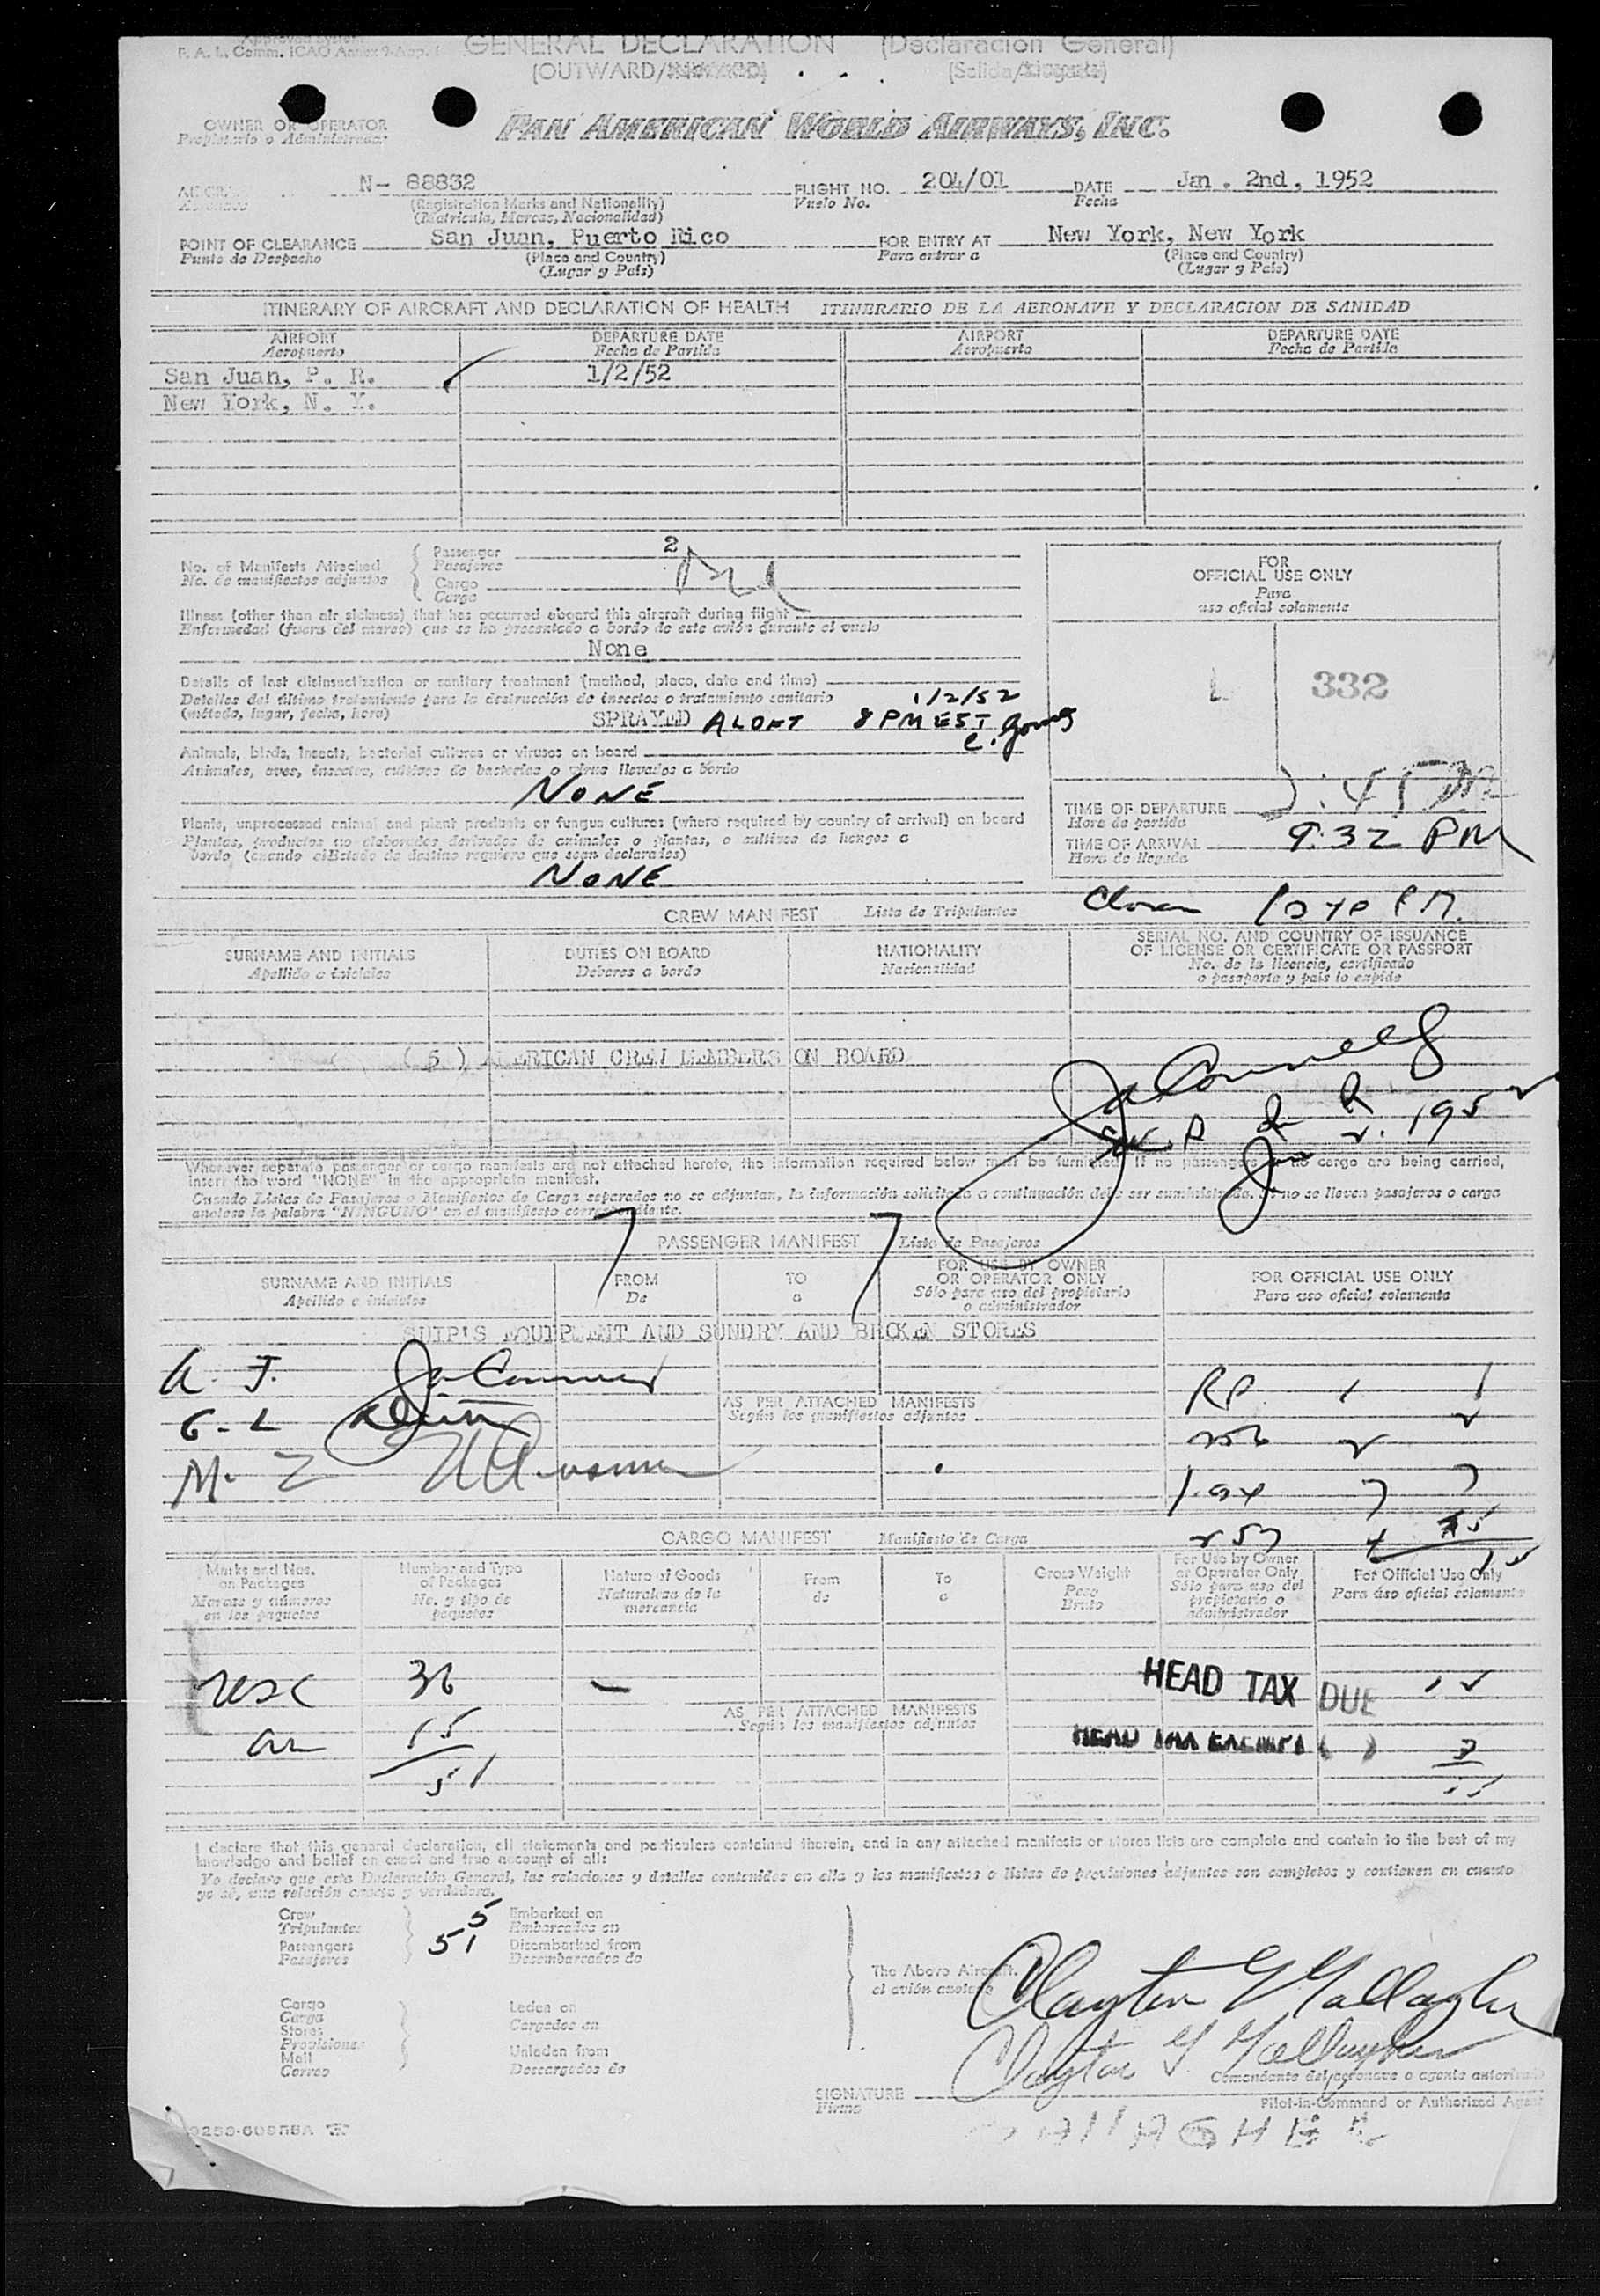 F. A. L. Comm. ICAO Annex 9-App. 1
GENERAL DECLARATION (Declaracion General)
(OUTWARD/ (Salida/
OWNER OR OPERATOR
Propietario o Administrador
PAN AMERICAN WORLD AIRWAYS, INC.
N- 88832 FLIGHT NO. 204/01 DATE Jan . 2nd, 1952
(Registration Marks and Nationality) Vuelo No. Fecha
(Matricula, Marcas, Nacionalidad)
POINT OF CLEARANCE San Juan, Puerto Rico FOR ENTRY AT New York, New York
Punto de Despacho (Place and Country) Para entrar a (Place and Country)
(Lugar y País) (Lugar y País)
ITINERARY OF AIRCRAFT AND DECLARATION OF HEALTH ITINERARIO DE LA AERONAVE Y DECLARACION DE SANIDAD
AIRPORT DEPARTURE DATE AIRPORT DEPARTURE DATE
Aeropuerto Fecha de Partida Aeropuerto Fecha de Partida
San Juan, P. R. 1/2/52
New York, N. Y.
No. of Manifests Attached
No. de manifiestos adjuntos
Passenger 2
Pasajeros
Cargo
Carga
Illness (other than air sickness) that has occurred aboard this aircraft during flight
Enfermedad (fuera del mareo) que se ha presentado a bordo de este avión durante el vuelo
None
Details of last disinsectization or sanitary treatment (method, place, date and time)
Detalles del último tratamiento para la destrucción de insectos o tratamiento sanitario
(método, lugar, fecha, hora) 1/2/52
SPRAYED ALOFT 8 PM EST
Animals, birds, insects, bacterial cultures or viruses on board
Animales, aves, insectos, cultivos de bacterias o virus llevados a bordo
NONE
Plants, unprocessed animal and plant products or fungus cultures (where required by country of arrival) on board
Plantas, productos no elaborados derivados de animales o plantas, o cultivos de hongos a
bordo (cuando el Estado de destino requiere que sean declarados)
NONE
FOR
OFFICIAL USE ONLY
Para
uso oficial solamente
L 332
TIME OF DEPARTURE
Hora de partida
TIME OF ARRIVAL 9:32 PM
Hora de llegada
CREW MANIFEST Lista de Tripulantes
SURNAME AND INITIALS DUTIES ON BOARD NATIONALITY SERIAL NO. AND COUNTRY OF ISSUANCE
OF LICENSE OR CERTIFICATE OR PASSPORT
Apellido o iniciales Deberes a bordo Nacionalidad No. de la licencia, certificado
o pasaporte y país lo expide
( 5 ) AMERICAN CREW MEMBERS ON BOARD
1952
Whenever separate passenger or cargo manifests are not attached hereto, the information required below must be furnished. If no passengers or no cargo are being carried,
insert the word "NONE" in the appropriate manifest.
Cuando Listas de Pasajeros o Manifiestos de Carga separados no se adjuntan, la información solicitada a continuación debe ser suministrada. Si no se llevan pasajeros o carga
anotese la palabra "NINGUNO" en el manifiesto correspondiente.
PASSENGER MANIFEST Lista de Pasajeros
SURNAME AND INITIALS FROM TO FOR USE BY OWNER
OR OPERATOR ONLY FOR OFFICIAL USE ONLY
Apellido e iniciales De a Sólo para uso del propietario
o administrador Para uso oficial solamente
SHIP'S EQUIPMENT AND SUNDRY AND BROKEN STORES
AS PER ATTACHED MANIFESTS
Según los manifiestos adjuntos
CARGO MANIFEST Manifiesto de Carga
Marks and Nos.
on Packages
Marcas y números
en los paquetes
Number and Type
of Packages
No. y tipo de
paquetes
Nature of Goods
Naturaleza de la
mercancía
From
de
To
a
Gross Weight
Peso
Bruto
For Use by Owner
or Operator Only
Sólo para uso del
propietario o
administrador
For Official Use Only
Para uso oficial solamente
36
HEAD TAX DUE
AS PER ATTACHED MANIFESTS
Según los manifiestos adjuntos
15
HEAD TAX EXEMPT ( )
51
I declare that this general declaration, all statements and particulars contained therein, and in any attached manifests or stores lists are complete and contain to the best of my
knowledge and belief an exact and true account of all:
Yo declaro que esta Declaración General, las relaciones y detalles contenidos en ella y los manifiestos o listas de provisiones adjuntos son completos y contienen en cuanto
yo sé, una relación exacta y verdadera.
Crew 5 Embarked on
Tripulantes Embarcados en
Passengers 51 Disembarked from
Pasajeros Desembarcados de
Cargo
Carga
Stores
Provisiones
Mail
Correo
Laden on
Cargados en
Unladen from
Descargados de
The Above Aircraft.
el avión anotado
Clayton Y Gallagher
Clayton Y Gallagher
Comandante del aeronave o agente autorizado
SIGNATURE
Firma
Pilot-in-Command or Authorized Agent
GALLAGHER